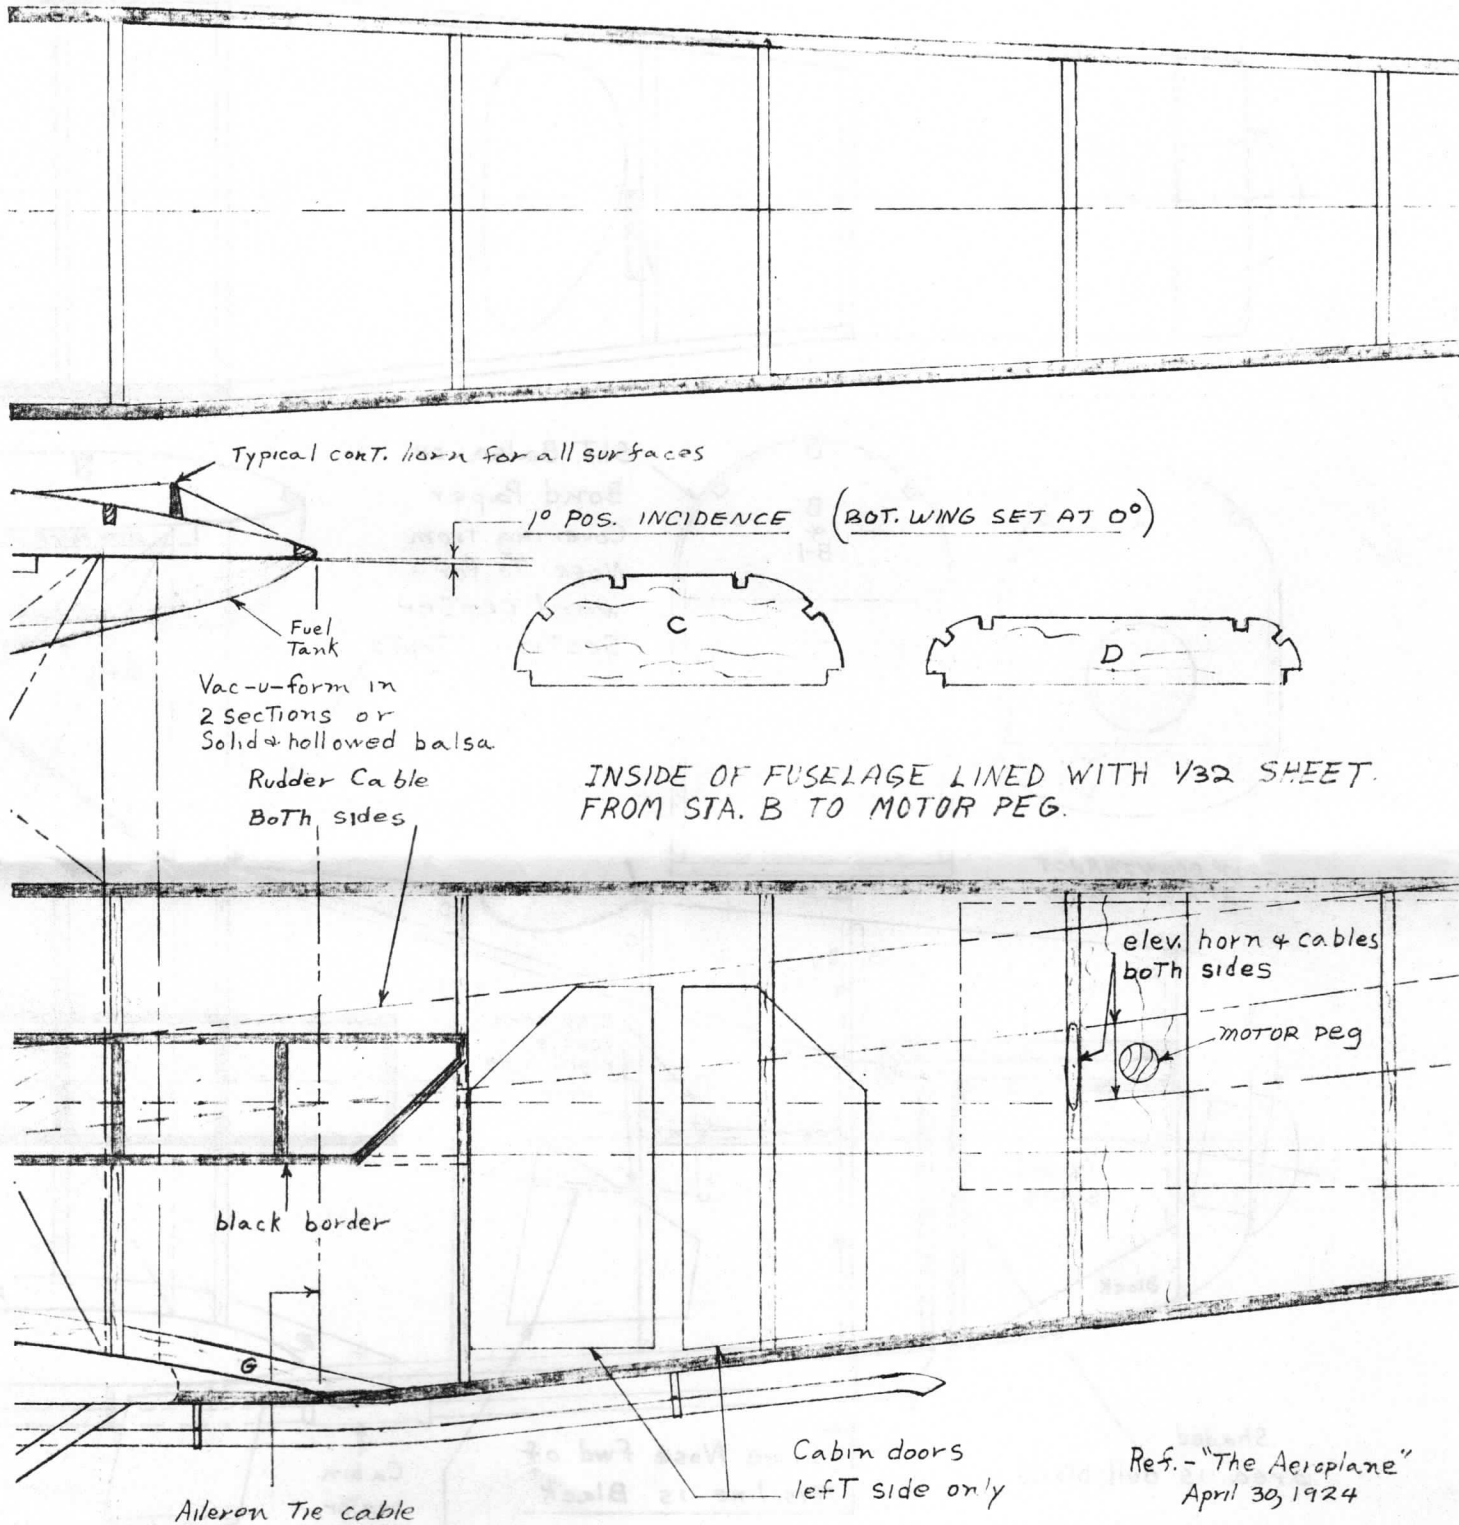 Typical conT. horn for all surfaces
1° POS. INCIDENCE (BOT. WING SET AT 0°)
Fuel
Tank
C
D
Vac-u-form in
2 secTions or
Solid & hollowed balsa
Rudder Cable
BoTh sides
INSIDE OF FUSELAGE LINED WITH 1/32 SHEET.
FROM STA. B TO MOTOR PEG.
elev. horn & cables
boTh sides
MOTOR PEG
black border
G
Cabin doors
lefT side only
Ref. - "The Aeroplane"
April 30, 1924
Aileron Tie cable